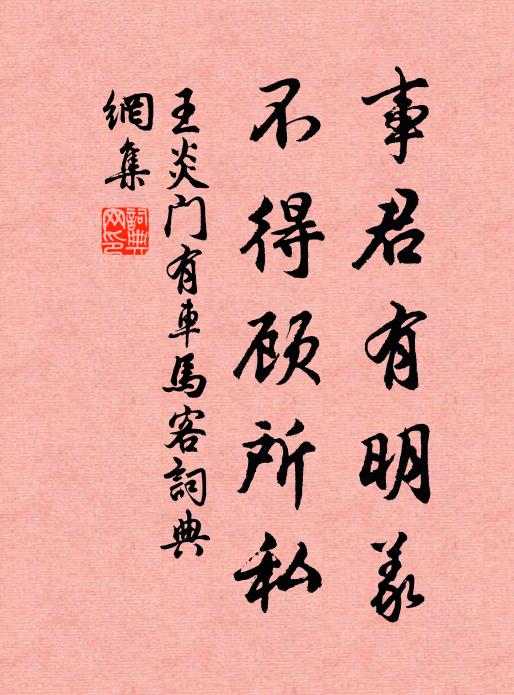 事君有明义
不得顾所私
王炎门有車馬客詞典
網集
詞典网印